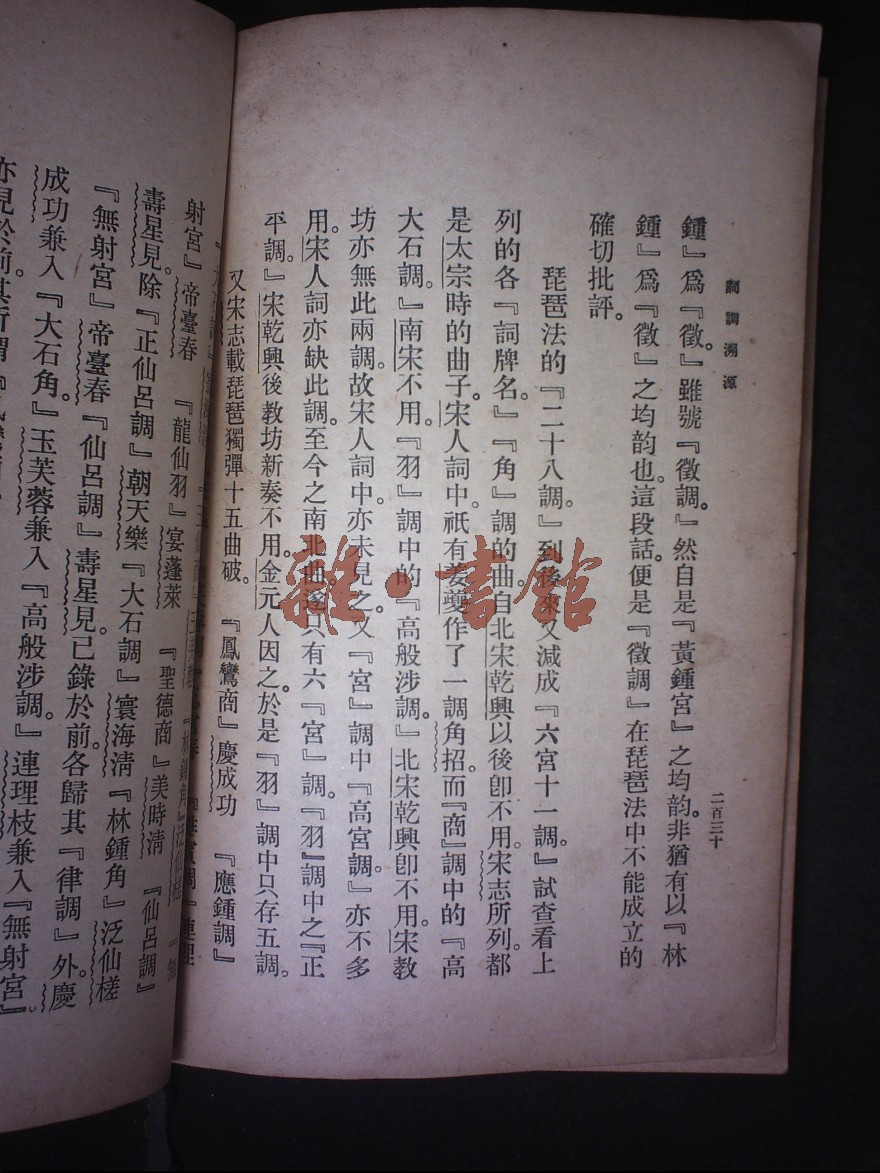 詞調溯源
二百三十
鍾』爲『徵。』雖號『徵調。』然自是『黃鍾宮』之均韵。非猶有以『林
鍾』爲『徵』之均韵也。這段話。便是『徵調』在琵琶法中不能成立的
確切批評。
琵琶法的『二十八調。』到後來又減成『六宮十一調。』試查看上
列的各『詞牌名。』『角』調的曲。自北宋乾興以後卽不用。宋志所列。都
是太宗時的曲子。宋人詞中。祇有姜夔作了一調角招。而『商』調中的『高
大石調。』南宋不用。『羽』調中的『高般涉調。』北宋乾興卽不用。宋教
坊亦無此兩調。故宋人詞中。亦未見之。又『宮』調中『高宮調』亦不多
用。宋人詞亦缺此調。至今之南北曲。遂只有六『宮』調。『羽』調中之『正
平調。』宋乾興後教坊新奏不用。金元人因之。於是『羽』調中只存五調。
又宋志載琵琶獨彈十五曲破。 『鳳鸞商』慶成功 『應鍾調』
射宮』帝臺春 『龍仙羽』宴蓬萊 『聖德商』美時淸 『仙呂調』
壽星見。除『正仙呂調』朝天樂『大石調』寰海淸『林鍾角』泛仙槎
『無射宮』帝臺春『仙呂調』壽星見。已錄於前。各歸其『律調』外。慶
成功兼入『大石角。』玉芙蓉兼入『高般涉調。』連理枝兼入『無射宮』
亦見於前。其所謂
雜·書館